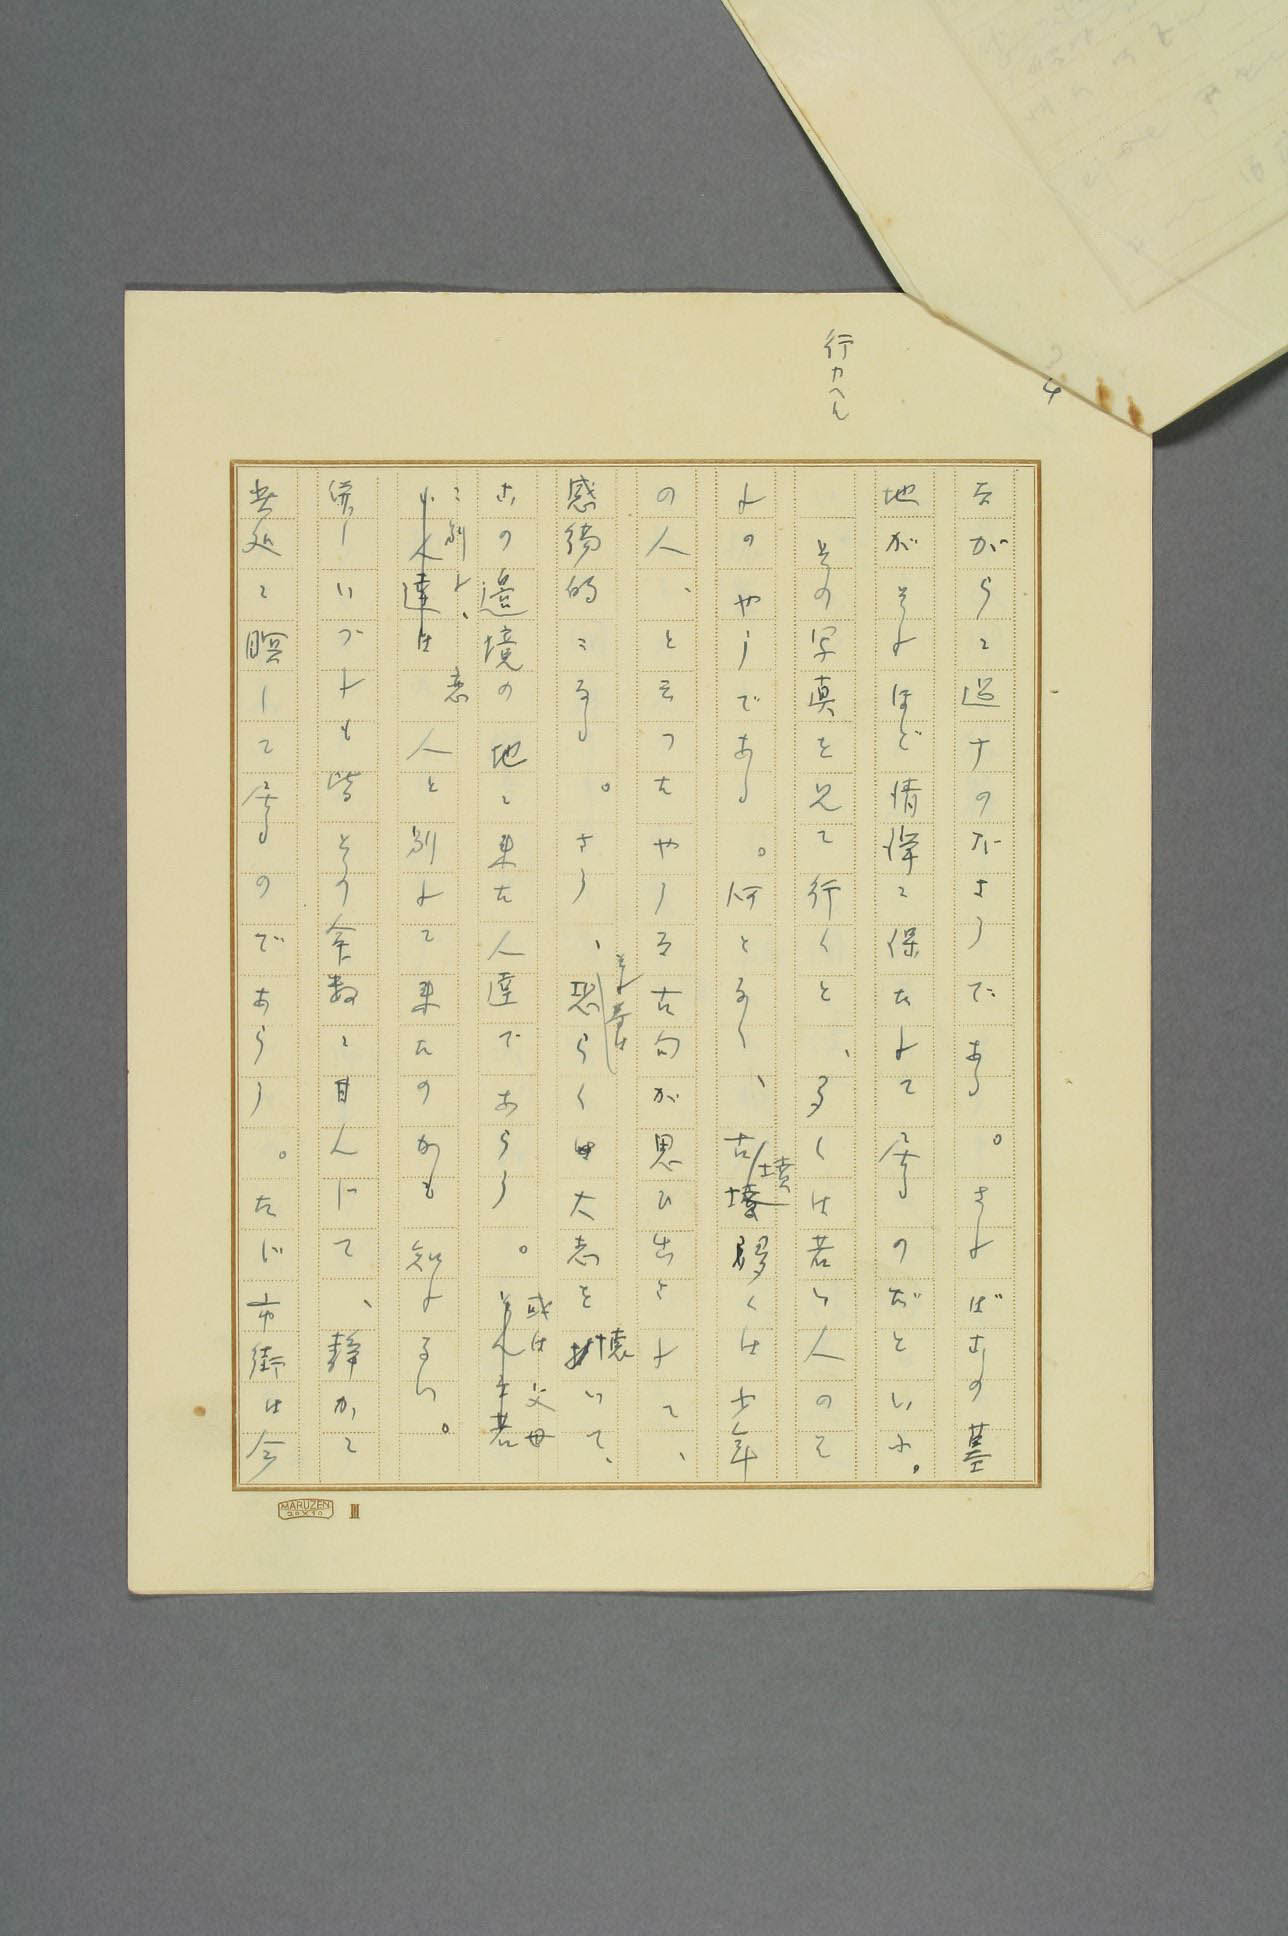 4
行カヘル
ながらに過すのださうである。さればこの墓
地がそれほど清潔に保たれて居るのだといふ。
その写真を見て行くと、多くは若い人のそ
れのやうである。何となく、古墳多くは少年
の人、と云つたやうな古句が思ひ出されて、
感傷的になる。さう、それ等は恐らくは大志を懐いて、
この邊境の地に来た人達であらう。或は父母
に別れ、恋人と別れて来たのかも知れない。
併しいづれも皆その命数に甘んじて、静かに
此処に瞑して居るのであらう。たゞ市街は今
MARUZEN
20×10
III